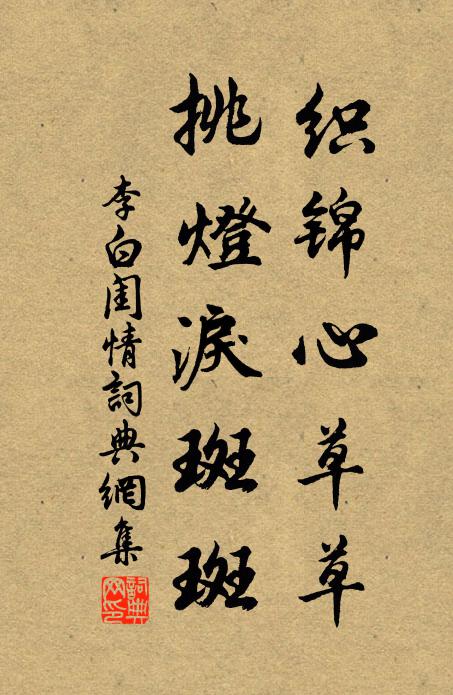 织锦心草草
挑燈淚斑斑
李白闺情詞典網集
詞典
网印